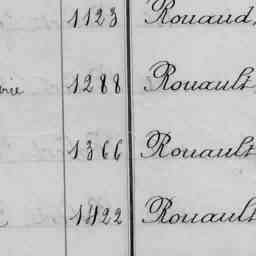 1123 Rouaud,
1288 Rouault
1366 Rouault
1422 Rouault